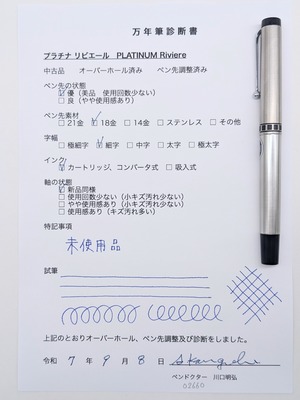 万年筆診断書
プラチナ リビエール PLATINUM Riviere
中古品 オーバーホール済み ペン先調整済み
ペン先の状態
☑優（美品 使用回数少ない）
□良（やや使用感あり）
ペン先素材
□21金 ☑18金 □14金 □ステンレス □その他
字幅
□極細字 ☑細字 □中字 □太字 □極太字
インク
☑カートリッジ、コンバータ式 □吸入式
軸の状態
☑新品同様
□使用回数少ない（小キズ汚れ少ない）
□やや使用感あり（小キズ汚れ少ない）
□使用感あり（キズ汚れ多い）
特記事項
未使用品
試筆
上記のとおりオーバーホール、ペン先調整及び診断をしました。
令和 7 年 9 月 8 日
ペンドクター 川口明弘
02660